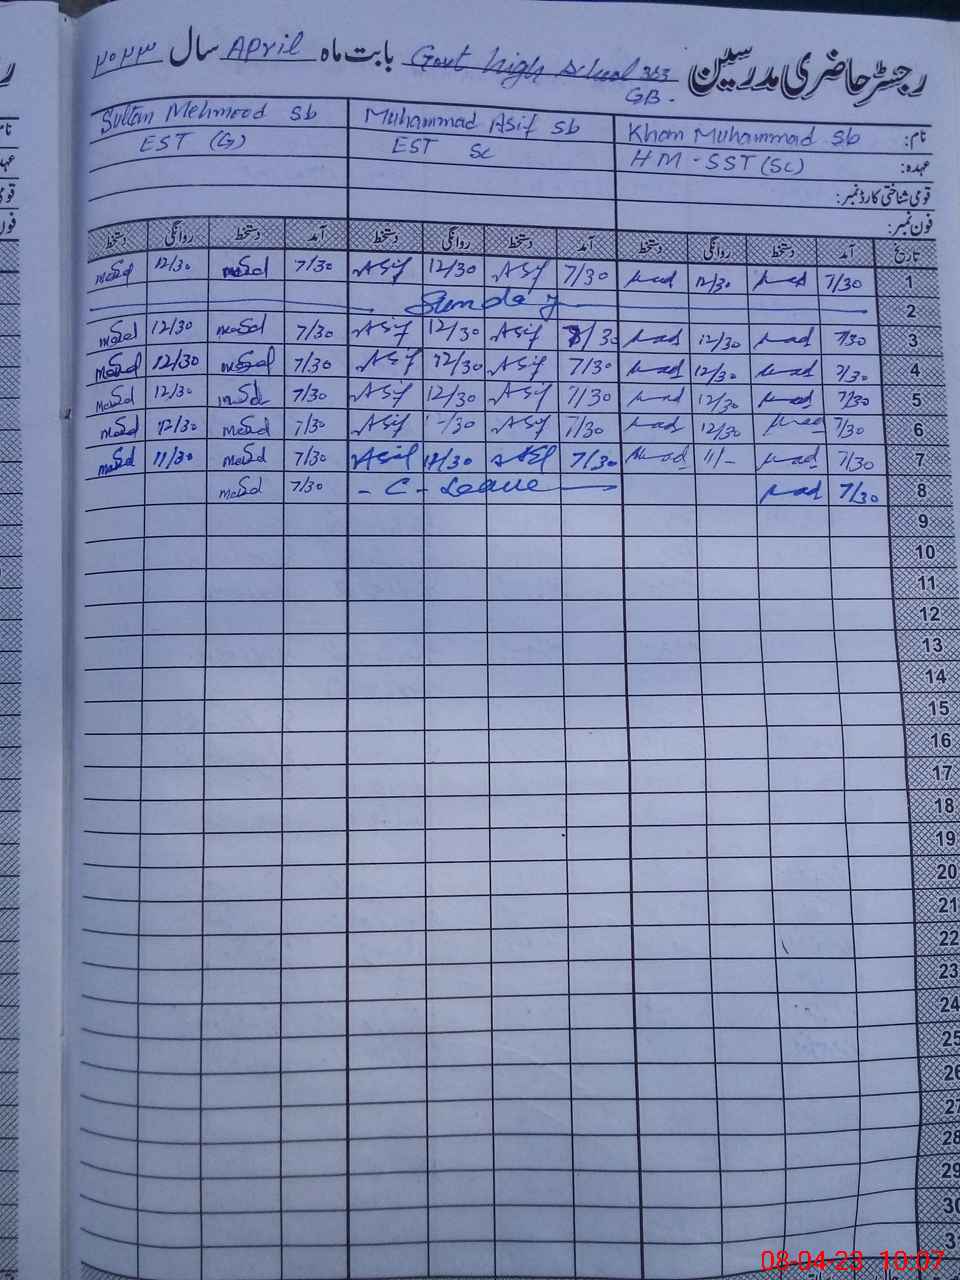 رجسٹر حاضری مدرسین Govt high school 363 GB. بابت ماہ April سال ۲۰۲۳
نام: Khan Muhammad Sb Muhammad Asif Sb Sultan Mehmood Sb
عہدہ: HM-SST (Sc) EST Sc EST (G)
قومی شناختی کارڈ نمبر:
فون نمبر:
تاریخ آمد دستخط روانگی دستخط آمد دستخط روانگی دستخط آمد دستخط روانگی دستخط
1 7/30 12/30 7/30 Asif 12/30 Asif 7/30 12/30
2 Sunday
3 7/30 12/30 Asif 12/30 Asif 7/30 12/30
4 7/30 12/30 7/30 Asif 12/30 Asif 7/30 12/30
5 7/30 12/30 7/30 Asif 12/30 Asif 7/30 12/30
6 7/30 12/30 7/30 Asif Asif 7/30 12/30
7 7/30 11/- 7/30 Asif Asif 7/30 11/30
8 7/30 - C - Leave 7/30
9
10
11
12
13
14
15
16
17
18
19
20
21
22
23
24
25
26
27
28
29
30
08-04-23 10:07